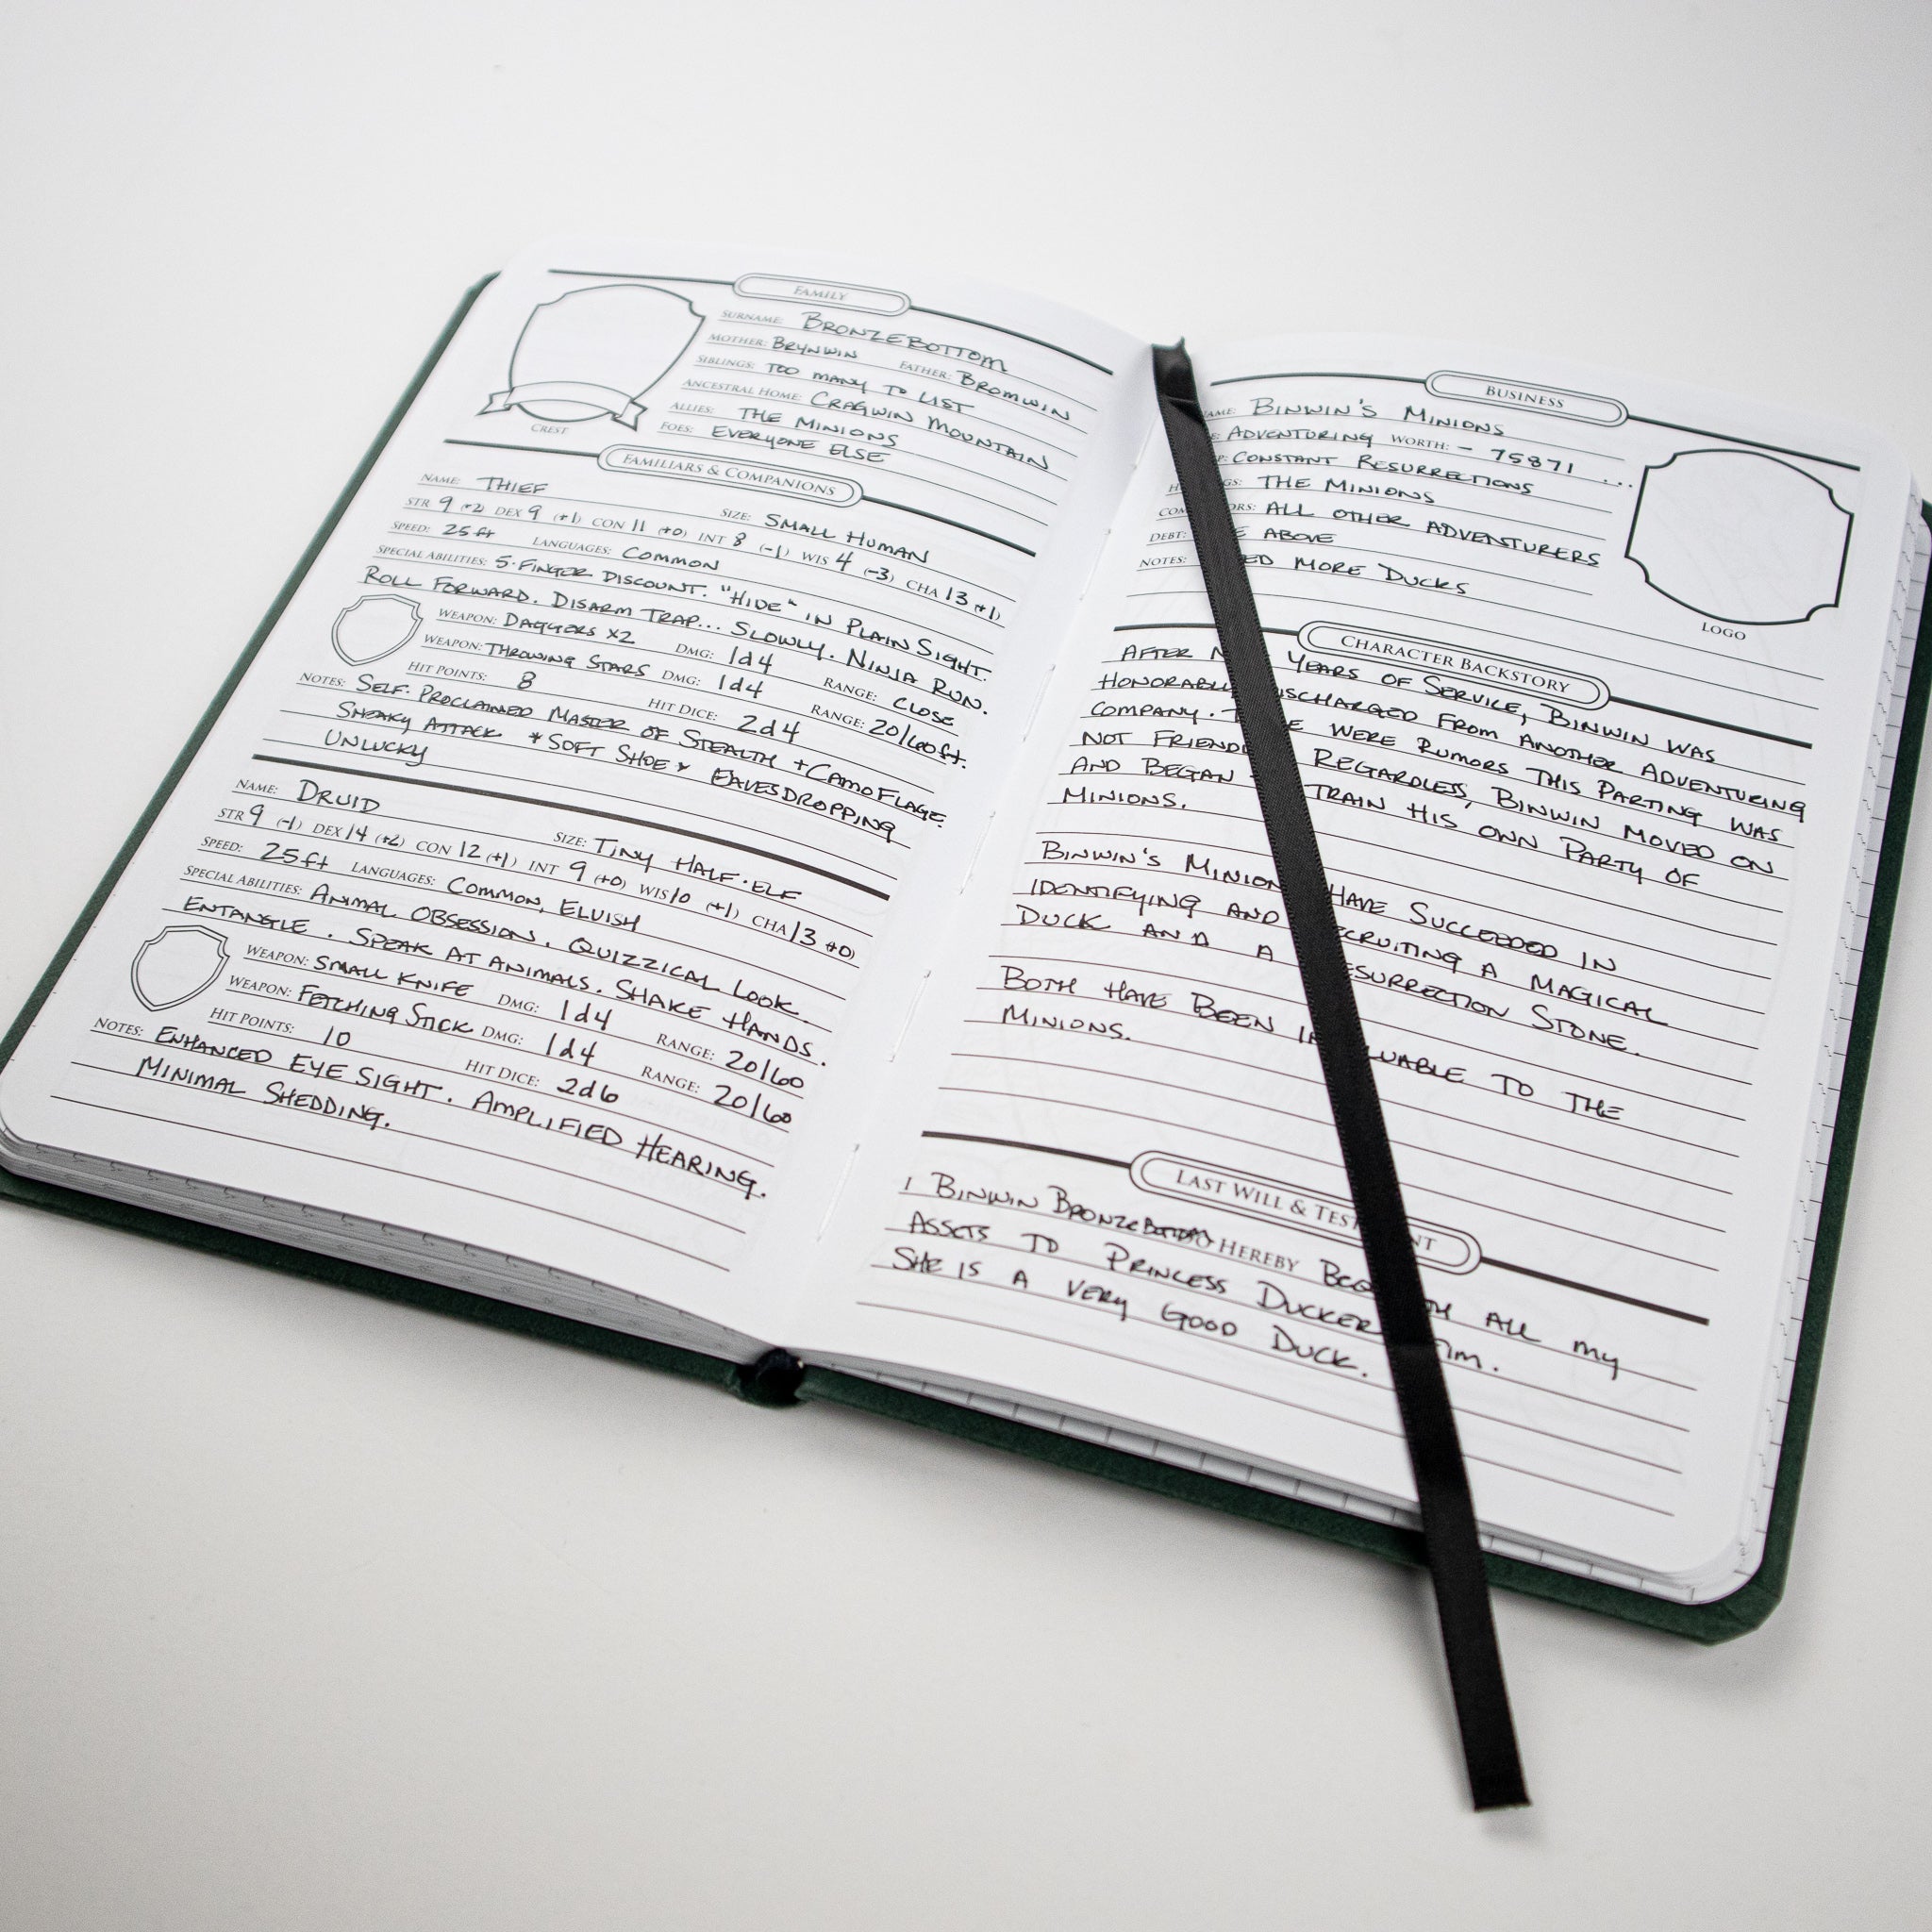 FAMILY
SURNAME: BRONZEBOTTOM
MOTHER: BRYNWIN FATHER: BROMWIN
SIBLINGS: TOO MANY TO LIST
ANCESTRAL HOME: CRAGWIN MOUNTAIN
ALLIES: THE MINIONS
FOES: EVERYONE ELSE
CREST
FAMILIARS & COMPANIONS
NAME: THIEF SIZE: SMALL HUMAN
STR 9 (+2) DEX 9 (+1) CON 11 (+0) INT 8 (-1) WIS 4 (-3) CHA 13 (+1)
SPEED: 25ft LANGUAGES: COMMON
SPECIAL ABILITIES: 5-FINGER DISCOUNT. "HIDE" IN PLAIN SIGHT.
ROLL FORWARD. DISARM TRAP... SLOWLY. NINJA RUN.
WEAPON: DAGGERS X2 DMG: 1d4 RANGE: CLOSE
WEAPON: THROWING STARS DMG: 1d4 RANGE: 20/60ft.
HIT POINTS: 8 HIT DICE: 2d4
NOTES: SELF-PROCLAIMED MASTER OF STEALTH + CAMOFLAGE.
SNEAKY ATTACK * SOFT SHOE * EAVESDROPPING
UNLUCKY
NAME: DRUID SIZE: TINY HALF-ELF
STR 9 (-1) DEX 14 (+2) CON 12 (+1) INT 9 (+0) WIS 10 (+1) CHA 13 (+0)
SPEED: 25ft LANGUAGES: COMMON, ELVISH
SPECIAL ABILITIES: ANIMAL OBSESSION. QUIZZICAL LOOK.
ENTANGLE. SPEAK AT ANIMALS. SHAKE HANDS.
WEAPON: SMALL KNIFE DMG: 1d4 RANGE: 20/60
WEAPON: FETCHING STICK DMG: 1d4 RANGE: 20/60
HIT POINTS: 10 HIT DICE: 2d6
NOTES: ENHANCED EYE SIGHT. AMPLIFIED HEARING.
MINIMAL SHEDDING.
BUSINESS
BINWIN'S MINIONS
ADVENTURING WORTH: - 75871 ...
CONSTANT RESURRECTIONS
THE MINIONS
ALL OTHER ADVENTURERS
DEBT: ABOVE
NOTES: MORE DUCKS
LOGO
CHARACTER BACKSTORY
AFTER YEARS OF SERVICE, BINWIN WAS
HONORABLY DISCHARGED FROM ANOTHER ADVENTURING
COMPANY. THERE WERE RUMORS THIS PARTING WAS
NOT FRIENDLY. REGARDLESS, BINWIN MOVED ON
AND BEGAN TRAIN HIS OWN PARTY OF
MINIONS.
BINWIN'S MINIONS HAVE SUCCEEDED IN
IDENTIFYING AND RECRUITING A MAGICAL
DUCK AND A RESURRECTION STONE.
BOTH HAVE BEEN INVALUABLE TO THE
MINIONS.
LAST WILL & TESTAMENT
I BINWIN BRONZEBOTTOM HEREBY BEQUEATH ALL MY
ASSETS TO PRINCESS
SHE IS A VERY GOOD DUCK.